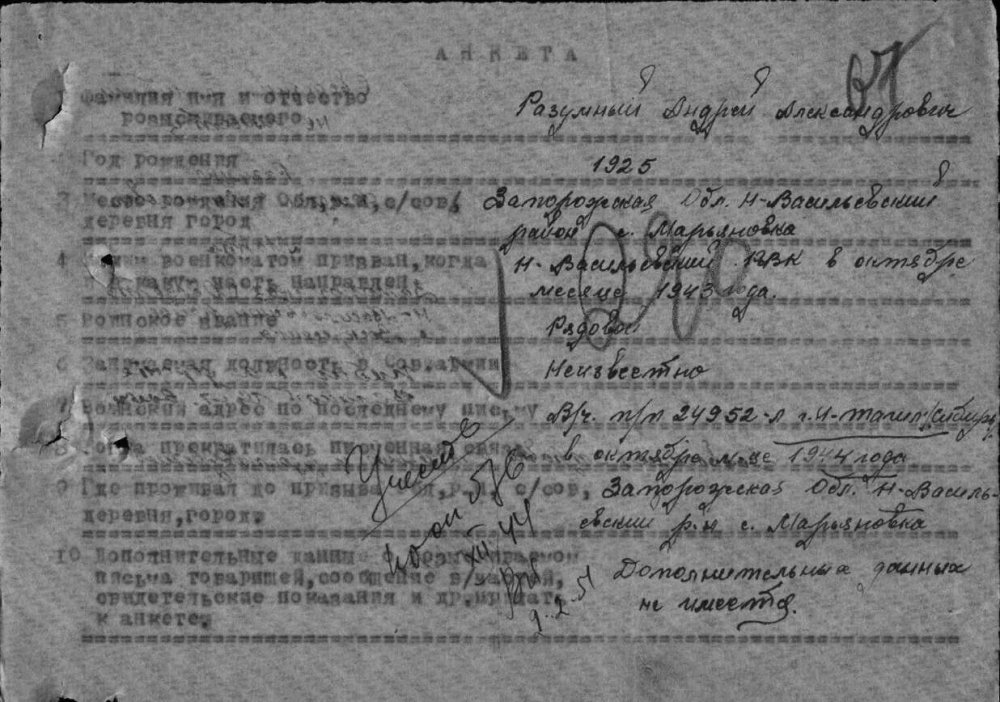 АНКЕТА
67
Фамилия имя и отчество
розыскиваемого
Разумный Андрей Александрович
Год рождения
1925
3 Место рождения Обл, р-н, с/сов,
деревня город
Запорожская Обл. Н-Васильевский
район с. Марьяновка
4 Каким военкоматом призван, когда
и в какую часть направлен
Н-Васильевский РВК в октябре
месяце 1943 года.
5 Воинское звание
Рядовой
6 Занимаемая должность в
Неизвестно
7 Воинский адрес по последнему письму
В/ч. п/п 24952-л г. Н-тагил (Сибирь)
8 Когда прекратилась письменная связь
в октябре м-це 1944 года
9 Где проживал до призыва обл, р-н, с/сов,
деревня, город.
Запорожская Обл. Н-Василь-
евский р-н с. Марьяновка
10 Дополнительные данные о розыскиваемом
письма товарищей, сообщение в/частей,
свидетельские показания и др.
к анкете.
Дополнительных данных
не имеется.
Учтен
XII 44
9-2-51